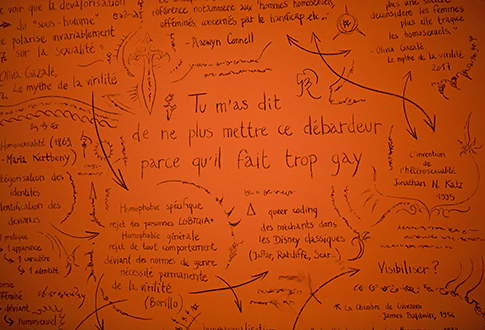 voir que la dévalorisation
du "sous-homme"
se polarise invariablement
sur la sexualité"
Olivia Gazalé,
Le mythe de la virilité
référence notamment aux "hommes homosexuels,
efféminés, concernés par le handicap etc..."
- Raewyn Connell
plus une société
déconsidère les femmes
plus elle traque
les homosexuels."
- Olivia Gazalé
Le mythe de la virilité
2017
Tu m'as dit
de ne plus mettre ce débardeur
parce qu'il fait trop gay
Homosexualité (1869)
- Maria Kertbeny
catégorisation des
identités
identification des
déviances
1 pratique
1 apparence
→ 1 caractère
→ 1 identité
féminité
= déviant
→ homosexuel
Homophobie spécifique
rejet des personnes LGBTQIA+
Homophobie générale
rejet de tout comportement
déviant des normes de genre
nécessité permanente
de la virilité
(Borillo)
queer coding
des méchants dans
les Disney classiques
(Jaffar, Ratcliffe, Scar...)
L'invention
de l'hétérosexualité
Jonathan N. Katz
1995
Visibiliser ?
* La chambre de Giovanni
- James Baldwin, 1956